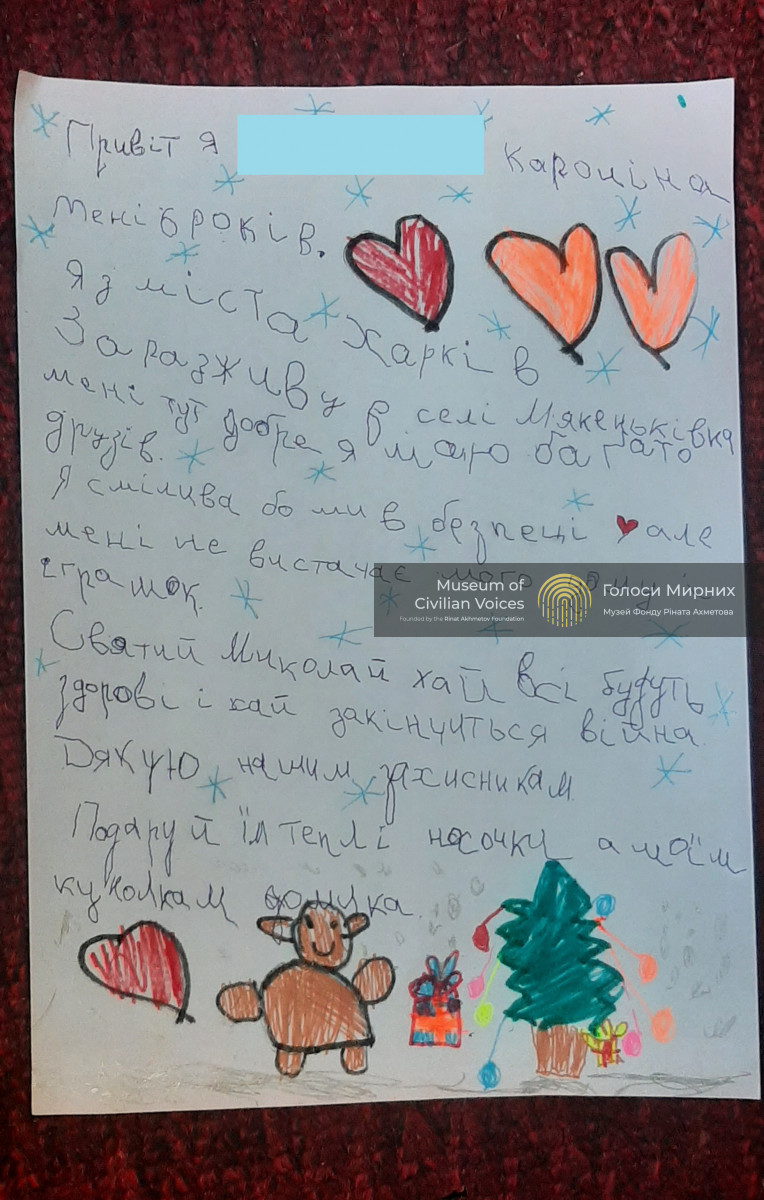 Привіт я Кароліна
Мені 6 років.
Я з міста Харків
Зараз живу в селі Мякеньківка
мені тут добре я маю багато
друзів.
Я смілива бо ми в безпеці але
мені не вистачає мого дому і
іграшок.
Святий Миколай хай всі будуть
здорові і хай закінчиться війна.
Дякую нашим захисникам.
Подаруй їм теплі носочки а моїм
куколкам домика.
Museum of
Civilian Voices
Founded by the Rinat Akhmetov Foundation
Голоси Мирних
Музей Фонду Ріната Ахметова